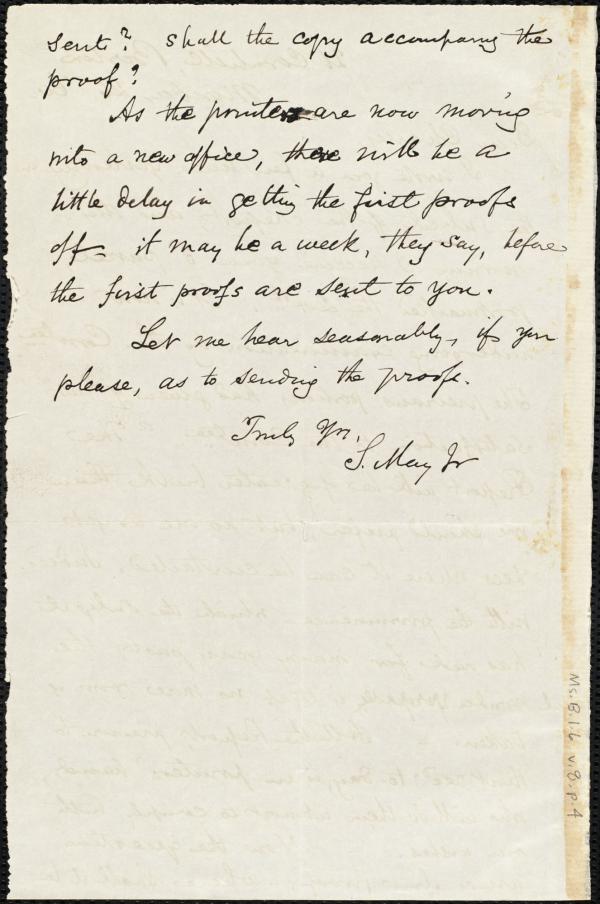 sent? shall the copy accompany the
proof?
As the printers are now moving
into a new office, there will be a
little delay in getting the first proofs
off - it may be a week, they say, before
the first proofs are sent to you.
Let me hear seasonably, if you
please, as to sending the proofs.
Truly Yrs,
S. May Jr
Ms. B. 1. 6 v. 8. p. 4